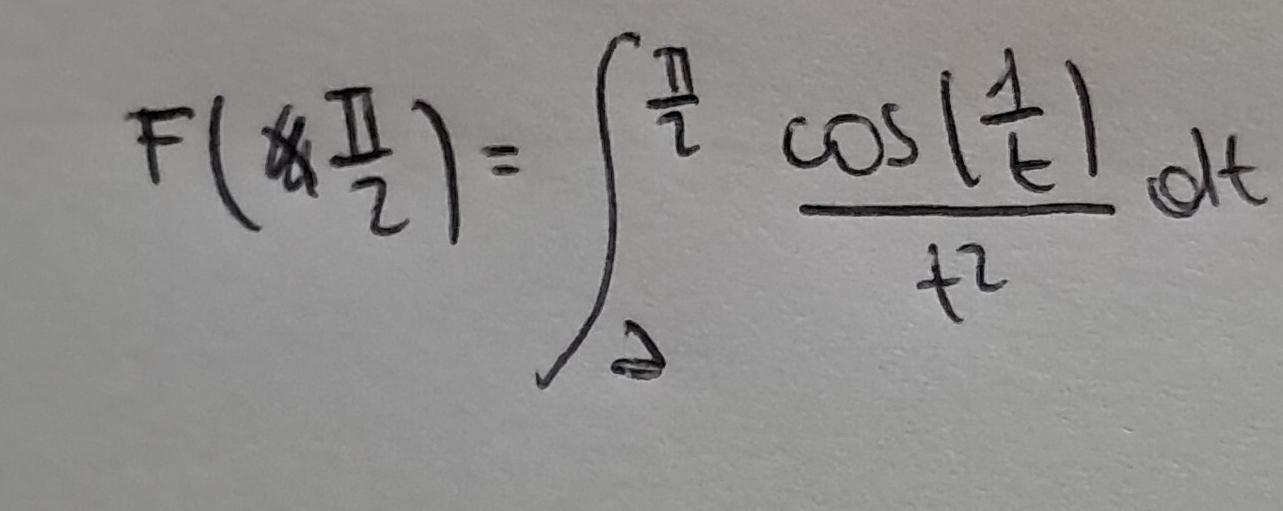 F(π/2) = ∫_2^{π/2} cos(1/t)/t² dt